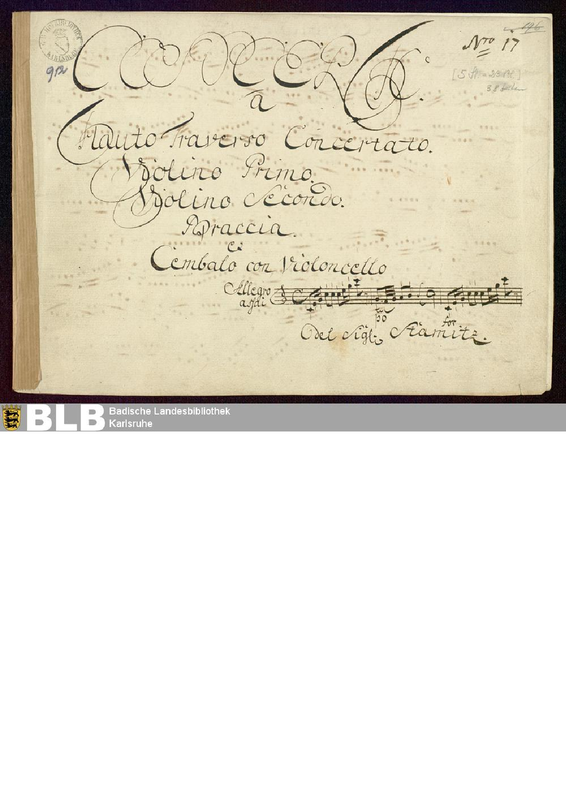 Nro 17
912
CONCERTO.
a
Flauto Traverso Concertato.
Violino Primo.
Violino Secondo.
Braccia.
e
Cembalo con Violoncello
Allegro
assai
for
del Sigr. Stamitz.
BLB
Badische Landesbibliothek
Karlsruhe